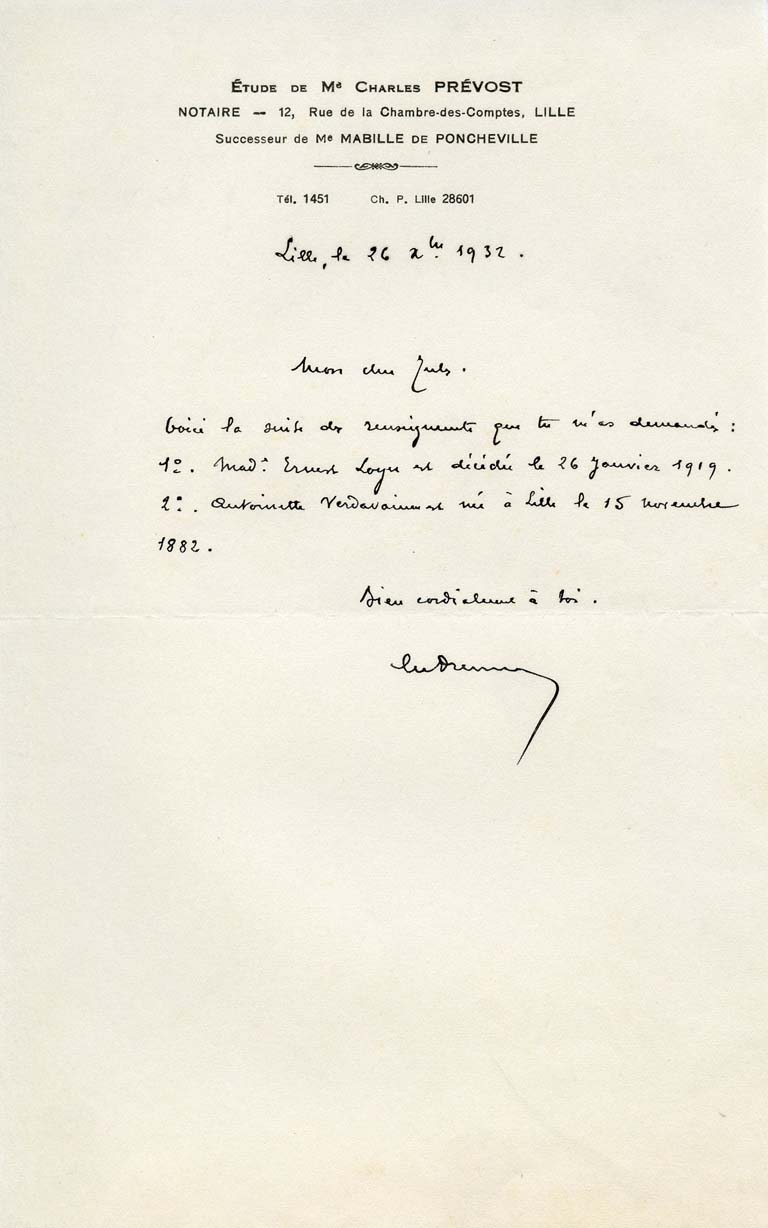 ÉTUDE DE Me CHARLES PRÉVOST
NOTAIRE — 12, Rue de la Chambre-des-Comptes, LILLE
Successeur de Me MABILLE DE PONCHEVILLE
Tél. 1451 Ch. P. Lille 28601
Lille, le 26 Xbre 1932.
Mon cher Jules.
Voici la suite des renseignements que tu m'as demandés :
1o. Made Ernest Loyer est décédée le 26 Janvier 1919.
2o. Antoinette Verdavainne est née à Lille le 15 novembre
1882.
Bien cordialement à toi.